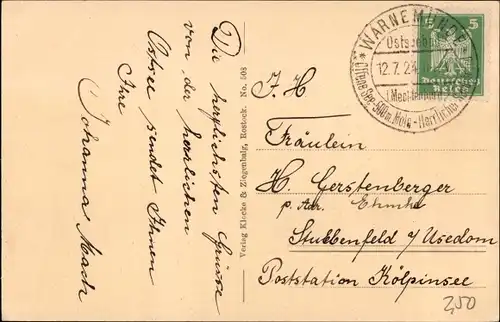 Die herzlichsten Grüsse
von der herrlichen
Ostsee sendet Ihnen
Ihre
Johanna Mach
Verlag Klocke & Ziegenbalg, Rostock. No. 508
WARNEMÜNDE
Ostseebad
12.7.24
(Mecklenburg)
* Offene See-500m. Mole-Herrlicher
5
Deutsches
Reich
I. H
Fräulein
H. Gerstenberger
p. Adr. Ehmke
Stubbenfeld a/ Usedom
Poststation Kölpinsee
2,50